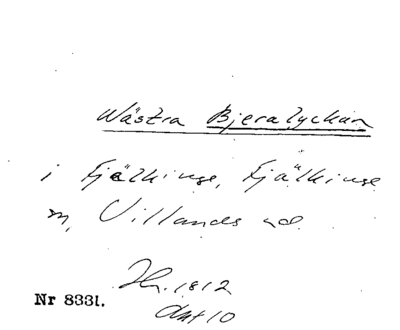 Wästra Bjeralyckan
i Fjälkinge, Fjälkinge
sn, Villands hd.
Hr. 1812
Akt 10
Nr 8331.